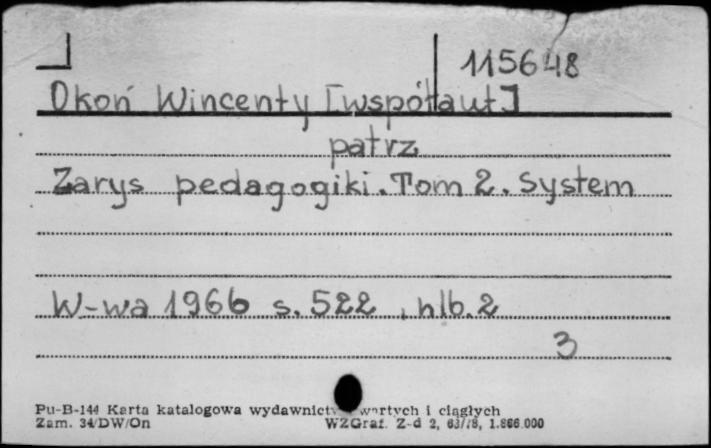 115648
Okoń Wincenty [współaut]
patrz
Zarys pedagogiki. Tom 2. System
W-wa 1966 s. 522, nlb. 2
3
Pu-B-144 Karta katalogowa wydawnictw zwartych i ciągłych
Zam. 34/DW/On WZGraf. Z-d 2, 63/78, 1.866.000